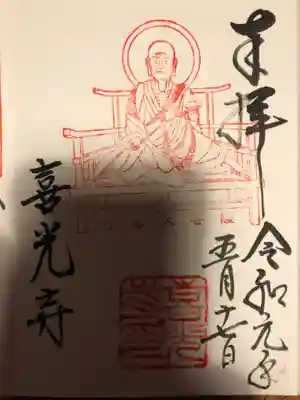 奉拝
令和元年
五月十七日
喜光寺